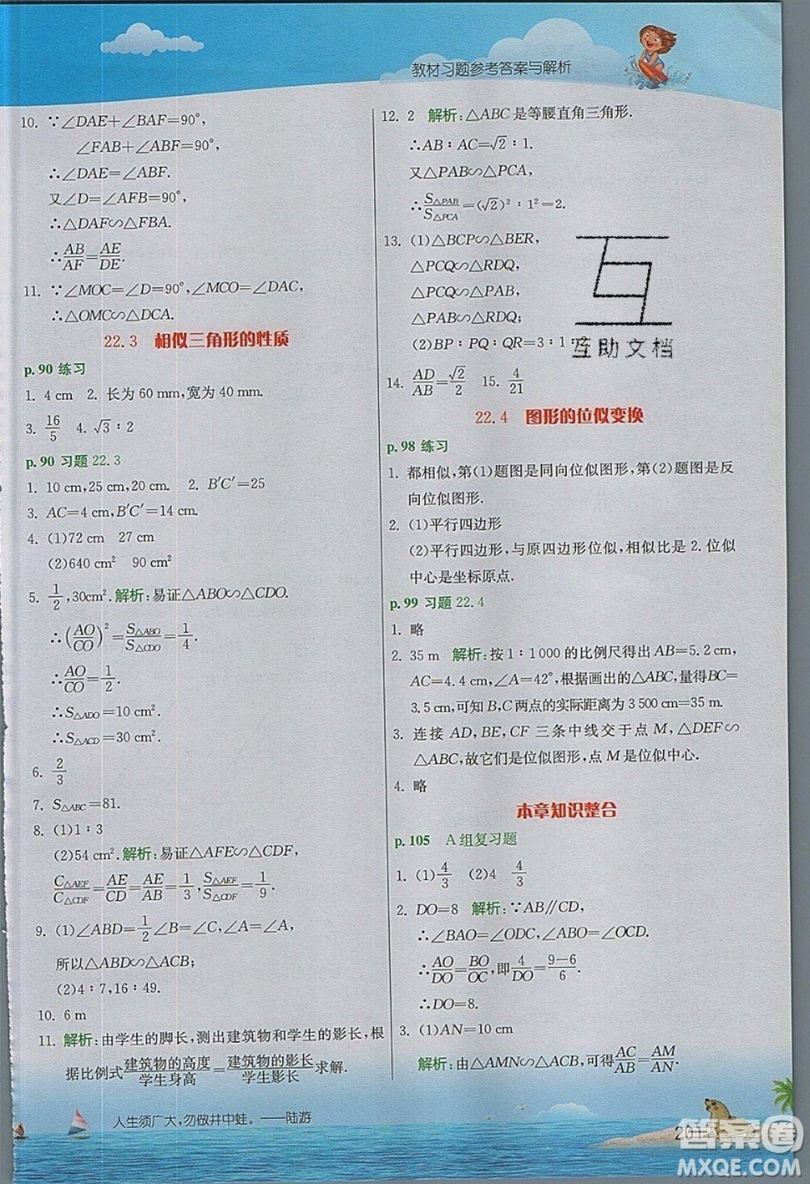 教材习题参考答案与解析
10. ∵∠DAE+∠BAF=90°,
∠FAB+∠ABF=90°,
∴∠DAE=∠ABF.
又∠D=∠AFB=90°,
∴△DAF∽△FBA.
∴AB/AF=AE/DE.
11. ∵∠MOC=∠D=90°,∠MCO=∠DAC,
∴△OMC∽△DCA.
22.3 相似三角形的性质
p.90 练习
1. 4 cm 2. 长为 60 mm,宽为 40 mm.
3. 16/5 4. √3∶2
p.90 习题 22.3
1. 10 cm,25 cm,20 cm. 2. B′C′=25
3. AC=4 cm,B′C′=14 cm.
4. (1)72 cm 27 cm
(2)640 cm² 90 cm²
5. 1/2,30cm².解析:易证△ABO∽△CDO.
∴(AO/CO)²=S△ABO/S△CDO=1/4.
∴AO/CO=1/2.
∴S△ADO=10 cm².
∴S△ACD=30 cm².
6. 2/3
7. S△ABC=81.
8. (1)1∶3
(2)54 cm² 解析:易证△AFE∽△CDF,
C△AEF/C△CDF=AE/CD=AE/AB=1/3,S△AEF/S△CDF=1/9.
9. (1)∠ABD=1/2∠B=∠C,∠A=∠A
所以△ABD∽△ACB.
(2)4∶7,16∶49.
10. 6 m
11. 解析:由学生的脚长,测出建筑物和学生的影长,根
据比例式建筑物的高度/学生身高=建筑物的影长/学生影长求解.
人生须广大,勿做井中蛙。——陆游
12. 2 解析:△ABC 是等腰直角三角形.
∴AB∶AC=√2∶1.
又△PAB∽△PCA,
∴S△PAB/S△PCA=(√2)²∶1²=2.
13. (1)△BCP∽△BER,
△PCQ∽△RDQ,
△PCQ∽△PAB,
△PAB∽△RDQ;
(2)BP∶PQ∶QR=3∶1∶
互助文档
14. AD/AB=√2/2 15. 4/21
22.4 图形的位似变换
p.98 练习
1. 都相似,第(1)题图是同向位似图形,第(2)题图是反
向位似图形.
2. (1)平行四边形
(2)平行四边形,与原四边形位似,相似比是 2. 位似
中心是坐标原点.
p.99 习题 22.4
1. 略
2. 35 m 解析:按 1∶1 000 的比例尺得出 AB=5.2 cm,
AC=4.4 cm,∠A=42°,根据画出的△ABC,量得 BC=
3.5 cm,可知 B,C 两点的实际距离为 3 500 cm=35 m.
3. 连接 AD,BE,CF 三条中线交于点 M,△DEF∽
△ABC,故它们是位似图形,点 M 是位似中心.
4. 略
本章知识整合
p.105 A组复习题
1. (1)4/3 (2)4 4/3
2. DO=8 解析:∵AB∥CD,
∴∠BAO=∠ODC,∠ABO=∠OCD.
∴AO/DO=BO/OC,即4/DO=(9-6)/6.
∴DO=8.
3. (1)AN=10 cm
解析:由△AMN∽△ACB,可得AC/AB=AM/AN.
201
答案圈
MXQE.COM